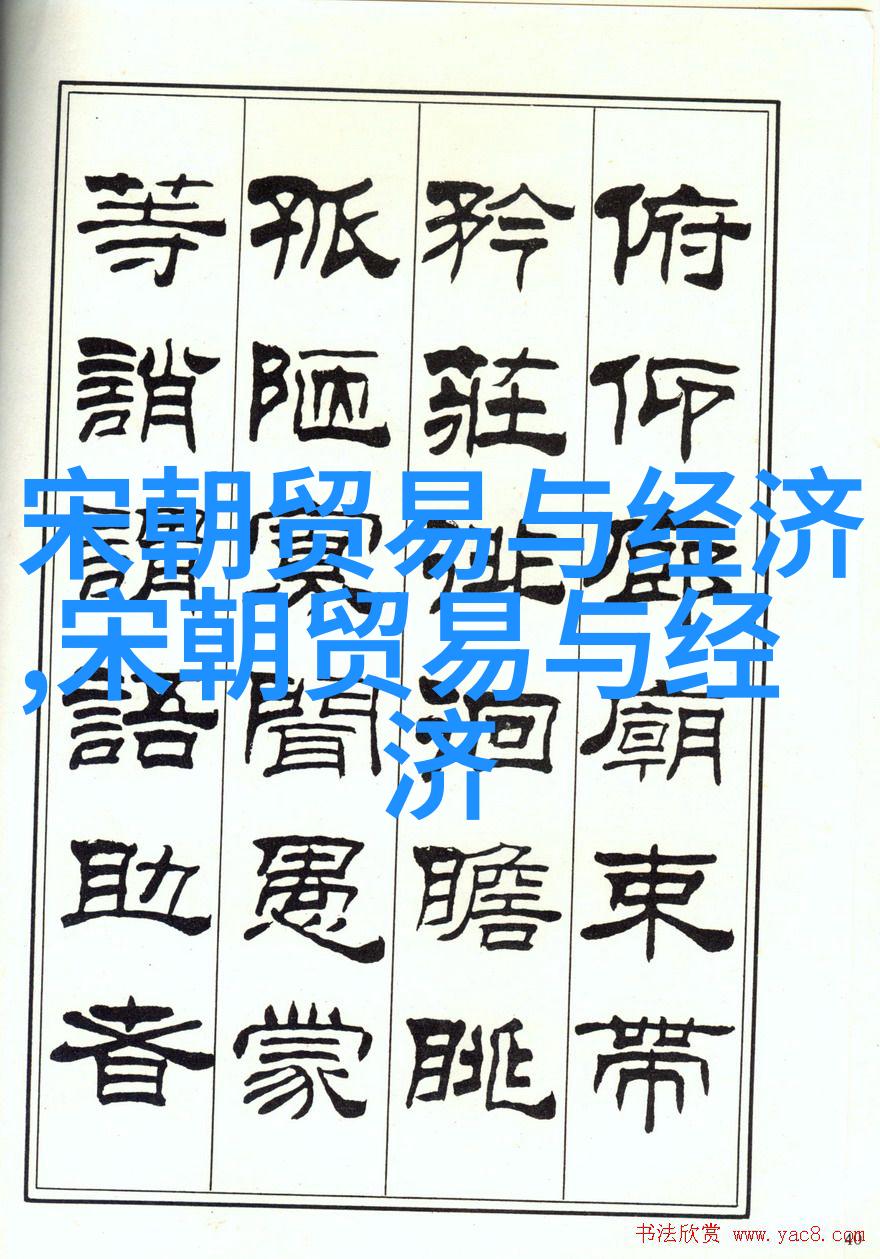 俯仰廊廟束帶
矜莊徘徊瞻眺
孤陋寡聞愚蒙
等誚謂語助者
宋朝贸易与经济
,宋朝贸易与经
济
书法欣赏 www.yac8.com
40